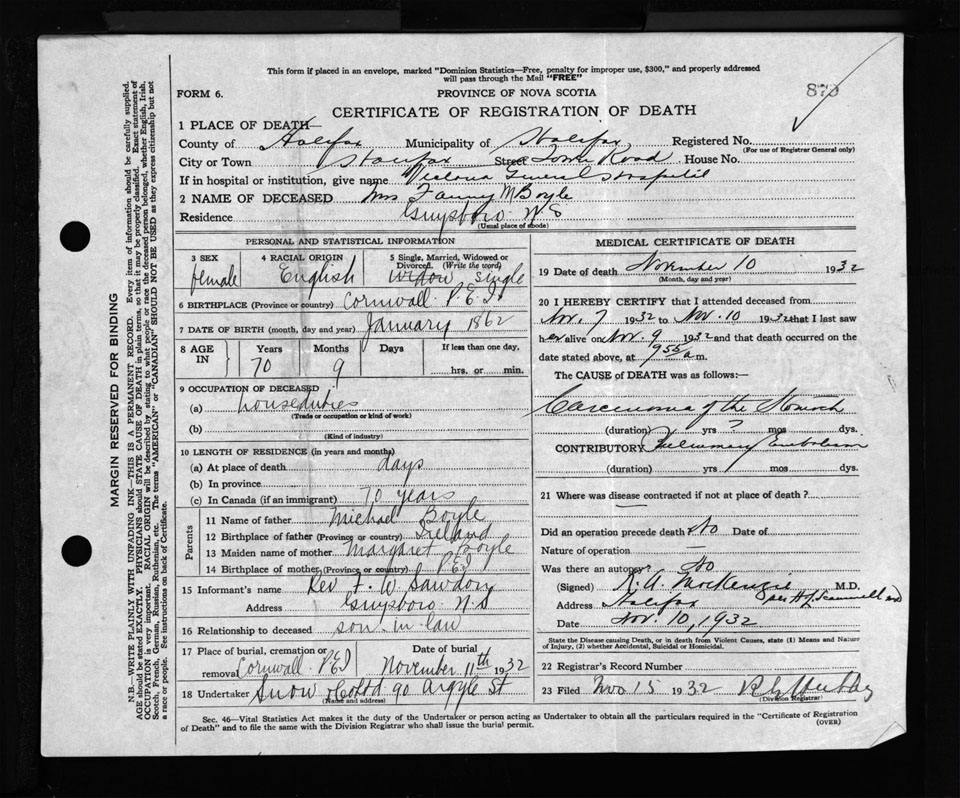 This form if placed in an envelope, marked "Dominion Statistics—Free, penalty for improper use, $300," and properly addressed
will pass through the Mail "FREE"
FORM 6.
PROVINCE OF NOVA SCOTIA
CERTIFICATE OF REGISTRATION OF DEATH
1 PLACE OF DEATH
County of Halifax Municipality of Halifax Registered No.
(For use of Registrar General only)
City or Town Halifax Street Tower Road House No.
If in hospital or institution, give name Victoria General Hospital
2 NAME OF DECEASED Mrs Fanny M Boyle
Residence Guysboro N S
(Usual place of abode)
PERSONAL AND STATISTICAL INFORMATION
3 SEX female
4 RACIAL ORIGIN English
5 Single, Married, Widowed or Divorced. (Write the word) Widow Single
6 BIRTHPLACE (Province or country) Cornwall P.E.I.
7 DATE OF BIRTH (month, day and year) January 1862
8 AGE IN
Years Months Days If less than one day,
70 9 hrs. or min.
9 OCCUPATION OF DECEASED
(a) houseduties
(Trade or occupation or kind of work)
(b)
(Kind of industry)
10 LENGTH OF RESIDENCE (in years and months)
(a) At place of death days
(b) In province
(c) In Canada (if an immigrant) 70 years
Parents
11 Name of father Michael Boyle
12 Birthplace of father (Province or country) Ireland
13 Maiden name of mother Margaret Boyle
14 Birthplace of mother (Province or country) P.E.I
15 Informant's name Rev F. W. Sawdon
Address Guysboro N.S
16 Relationship to deceased son-in-law
17 Place of burial, cremation or removal Cornwall P.E.I Date of burial November 11th 1932
18 Undertaker Snow & Co Ltd 90 Argyle St
(Name and address)
MEDICAL CERTIFICATE OF DEATH
19 Date of death November 10 1932
(Month, day and year)
20 I HEREBY CERTIFY that I attended deceased from
Nov. 7 1932 to Nov. 10 1932 that I last saw
her alive on Nov. 9 1932 and that death occurred on the
date stated above, at 9 55 a m.
The CAUSE of DEATH was as follows:—
Carcinoma of the Stomach
(duration) yrs ? mos dys.
CONTRIBUTORY Pulmonary Embolism
(duration) yrs mos dys.
21 Where was disease contracted if not at place of death ?
Did an operation precede death No Date of
Nature of operation —
Was there an autopsy? No
(Signed) K. A. MacKenzie M.D.
Address Halifax (per H.J. Scammell MD)
Date Nov. 10, 1932
State the Disease causing Death, or in death from Violent Causes, state (1) Means and Nature
of Injury, (2) whether Accidental, Suicidal or Homicidal.
22 Registrar's Record Number
23 Filed Nov 15 1932
(Division Registrar)
Sec. 46—Vital Statistics Act makes it the duty of the Undertaker or person acting as Undertaker to obtain all the particulars required in the "Certificate of Registration
of Death" and to file the same with the Division Registrar who shall issue the burial permit.
(OVER)
MARGIN RESERVED FOR BINDING
N.B.—WRITE PLAINLY WITH UNFADING INK—THIS IS A PERMANENT RECORD. Every item of information should be carefully supplied.
AGE should be stated EXACTLY. PHYSICIANS should STATE CAUSE OF DEATH in plain terms, so that it may be properly classified. Exact statement of
OCCUPATION is very important. RACIAL ORIGIN will be described by stating to what people or race the deceased person belonged, whether English, Irish,
Scotch, French, German, Russian, Ruthenian, etc. The terms "AMERICAN" or "CANADIAN" SHOULD NOT BE USED as they express citizenship but not
a race or people. See instructions on back of Certificate.